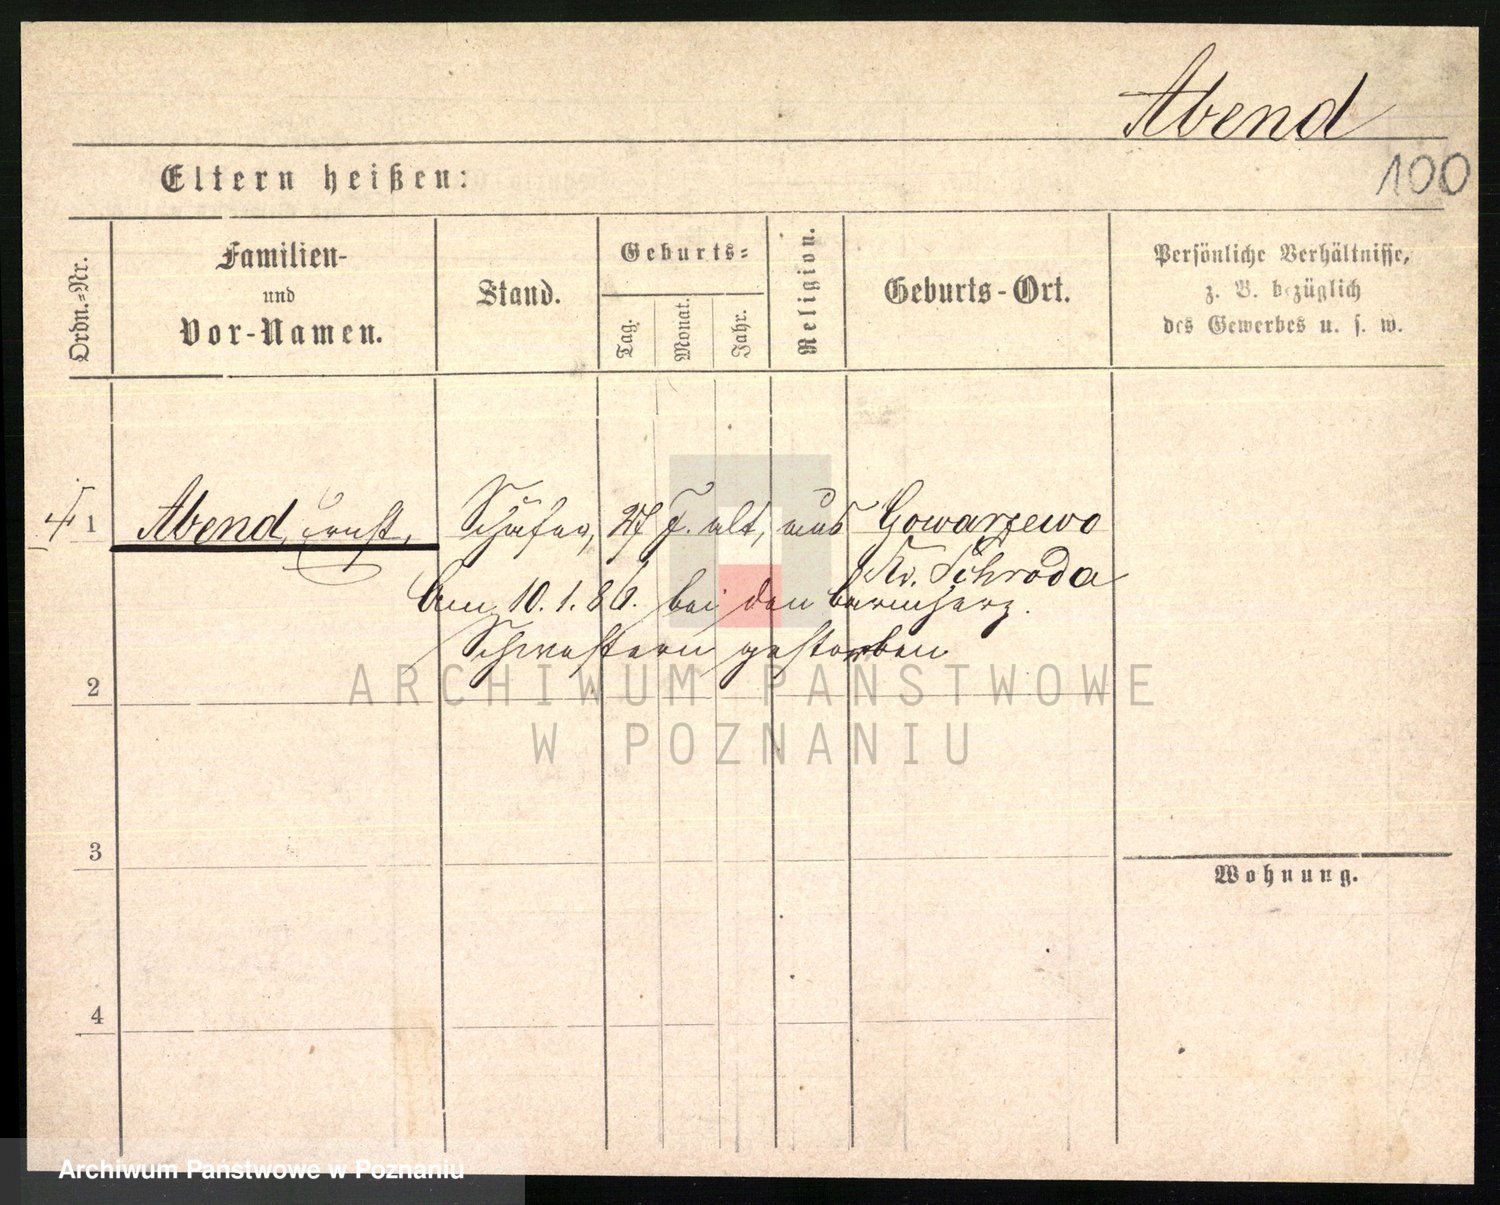 Abend
100
Eltern heißen:
Ordn.=Nr.
Familien-
und
Vor-Namen.
Stand.
Geburts=
Tag.
Monat.
Jahr.
Religion.
Geburts-Ort.
Persönliche Verhältnisse,
z. B. bezüglich
des Gewerbes u. s. w.
1 Abend, Ernst, Schäfer, 27 J. alt, aus Gowarzewo
Kr. Schroda
Am 10.1.86. bei den barmherz.
Schwestern gestorben
2
3
4
Wohnung.
ARCHIWUM PAŃSTWOWE
W POZNANIU
Archiwum Państwowe w Poznaniu